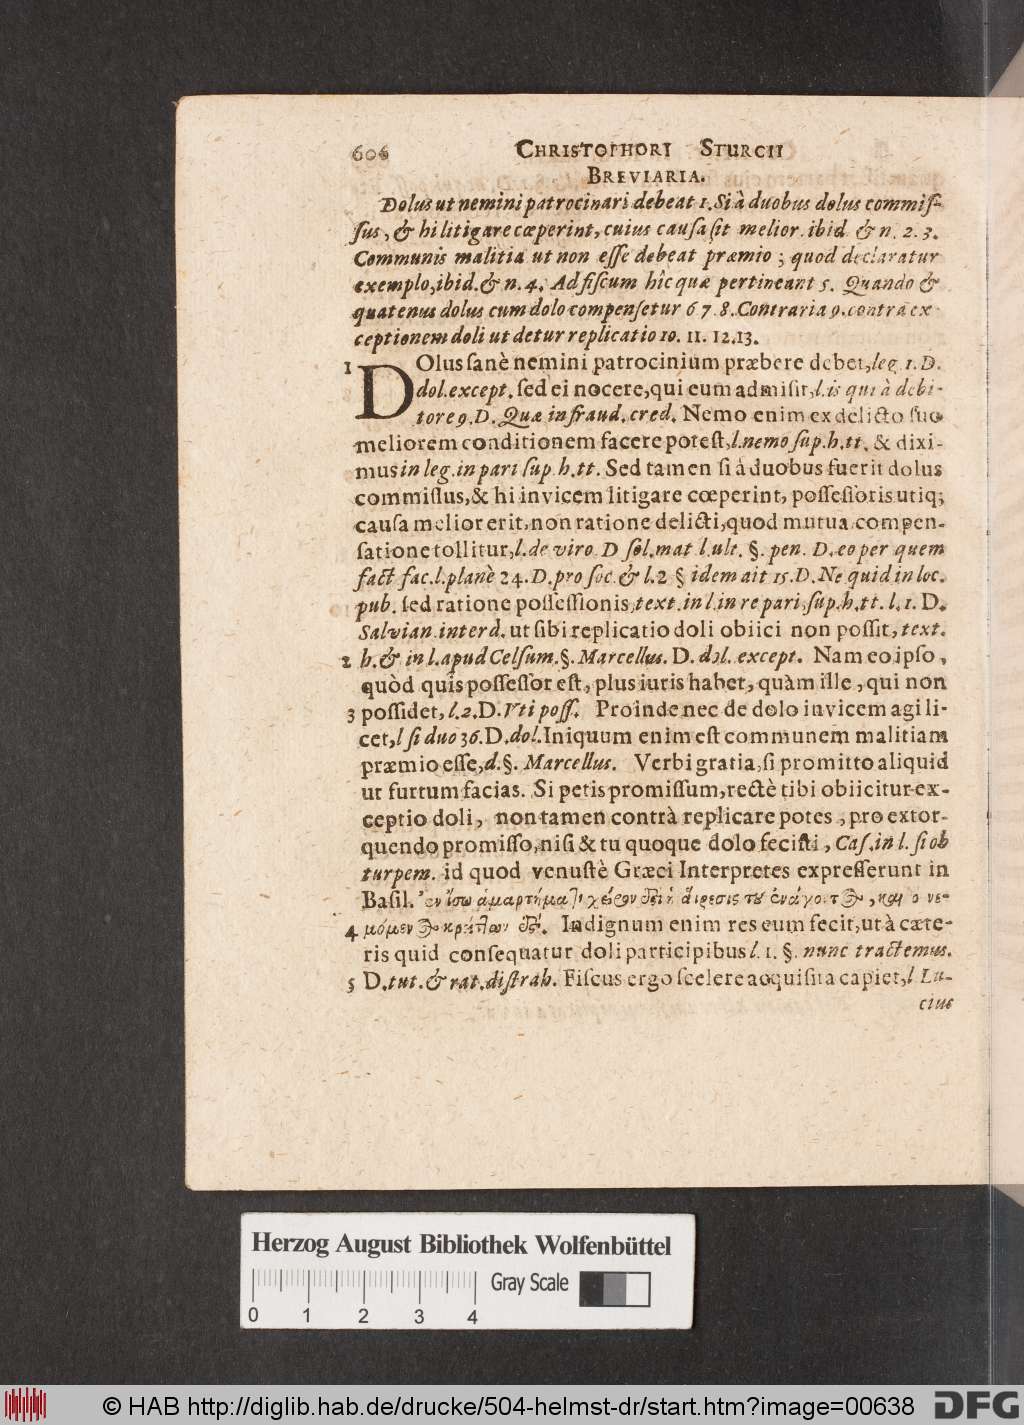 606 CHRISTOPHORI STURCII
BREVIARIA.
Dolus ut nemini patrocinari debeat 1. Si à duobus dolus commis-
sus, & hi litigare cœperint, cuius causa sit melior. ibid & n. 2. 3.
Communis malitia ut non esse debeat præmio; quod declaratur
exemplo, ibid. & n. 4. Ad fiscum hîc quæ pertineant 5. Quando &
quatenus dolus cum dolo compensetur 6 7. 8. Contraria 9. contra ex-
ceptionem doli ut detur replicatio 10. 11. 12. 13.
1 DOlus sanè nemini patrocinium præbere debet, leg 1. D.
dol. except. sed ei nocere, qui eum admisit, l. is qui à debi-
tore 9. D. Quæ in fraud. cred. Nemo enim ex delicto suo
meliorem conditionem facere potest, l. nemo sup. h. tt. & dixi-
mus in leg. in pari sup. h. tt. Sed tamen si à duobus fuerit dolus
commissus, & hi invicem litigare cœperint, possessioris utiq;
causa melior erit, non ratione delicti, quod mutua compen-
satione tollitur, l. de viro D sol. mat l. ult. §. pen. D. eo per quem
fact fac. l. planè 24. D. pro soc. & l. 2 § idem ait 15. D. Ne quid in loc.
pub. sed ratione possessionis, text. in l. in re pari, sup. h. tt. l. 1. D.
Salvian. interd. ut sibi replicatio doli obiici non possit, text.
2 h. & in l. apud Celsum. §. Marcellus. D. dol. except. Nam eo ipso,
quòd quis possessor est, plus iuris habet, quàm ille, qui non
3 possidet, l. 2. D. Uti poss. Proinde nec de dolo invicem agi li-
cet, l si duo 36. D. dol. Iniquum enim est communem malitiam
præmio esse, d. §. Marcellus. Verbi gratia, si promitto aliquid
ut furtum facias. Si petis promissum, rectè tibi obiicitur ex-
ceptio doli, non tamen contrà replicare potes, pro extor-
quendo promisso, nisi & tu quoque dolo fecisti, Cas. in l. si ob
turpem. id quod venustè Græci Interpretes expresserunt in
Basil. ἐν ἴσῳ ἁμαρτήματι χείρων ἐστὶ ἡ αἵρεσις τοῦ ἐνάγοντος, καὶ ὁ νε-
4 μόμενος κρείττων ἐστί. Indignum enim res eum fecit, ut à cæte-
ris quid consequatur doli participibus l. 1. §. nunc tractemus.
5 D. tut. & rat. distrah. Fiscus ergo scelere acquisita capiet, l Lu-
cius
Herzog August Bibliothek Wolfenbüttel
Gray Scale
0 1 2 3 4
© HAB http://diglib.hab.de/drucke/504-helmst-dr/start.htm?image=00638
DFG